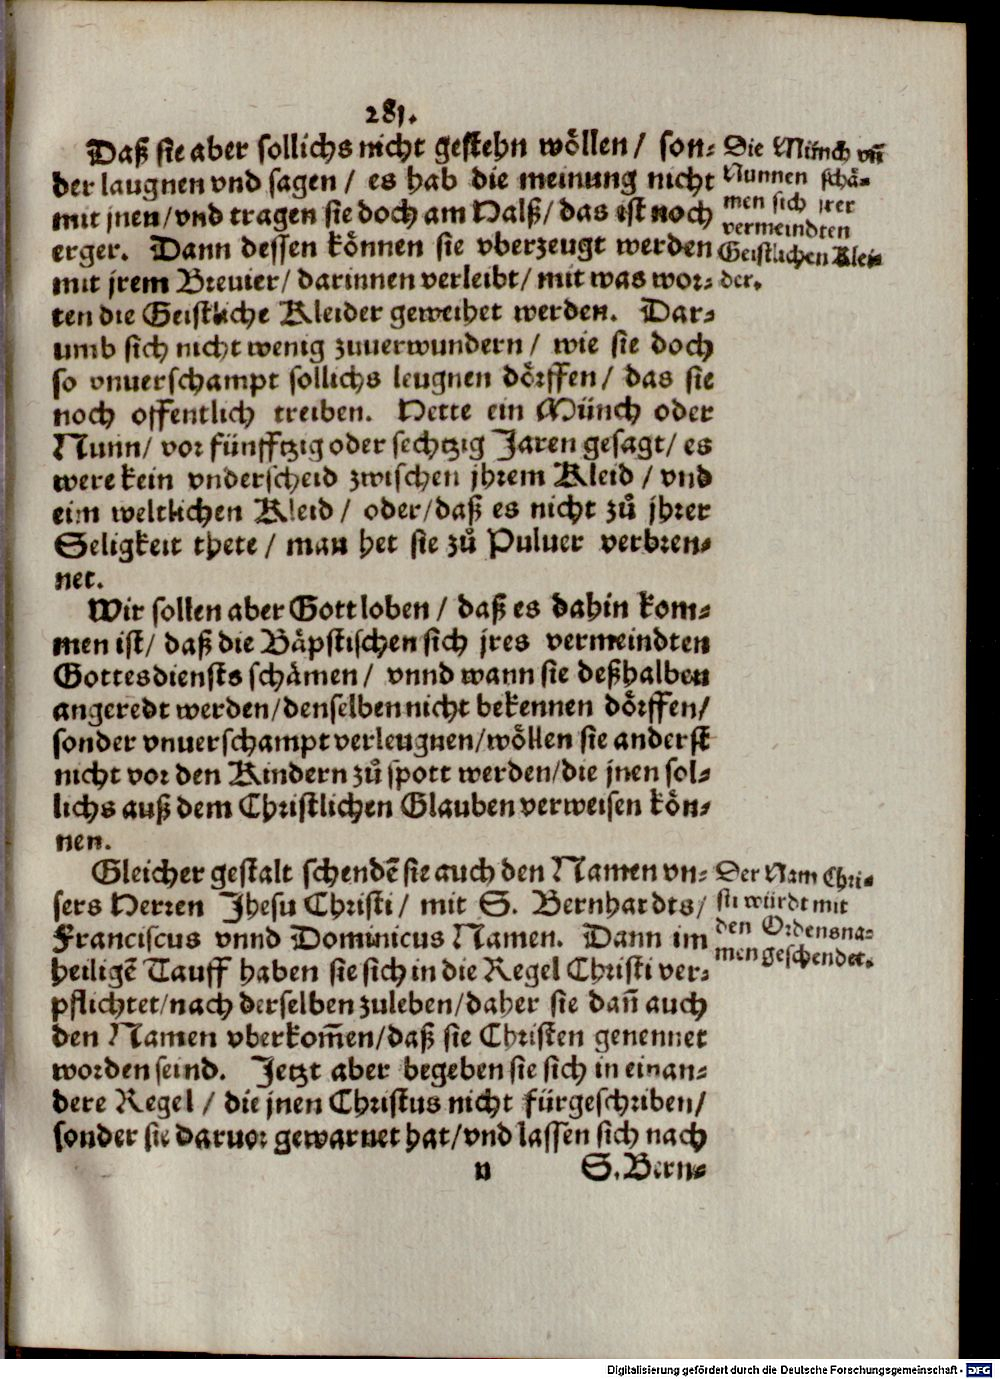 281.
Daß sie aber sollichs nicht gestehn wöllen / son-
der laugnen vnd sagen / es hab die meinung nicht
mit jnen / vnd tragen sie doch am Halß / das ist noch
erger. Dann dessen können sie vberzeugt werden
mit jrem Breuier / darinnen verleibt / mit was wor-
ten die Geistliche Kleider geweihet werden. Dar-
umb sich nicht wenig zuuerwundern / wie sie doch
so vnuerschampt sollichs leugnen dörffen / das sie
noch offentlich treiben. Hette ein Münch oder
Nunn / vor fünfftzig oder sechtzig Jaren gesagt / es
were kein vnderscheid zwischen jhrem Kleid / vnd
eim weltlichen Kleid / oder / daß es nicht zů jhrer
Seligkeit thete / man het sie zů Puluer verbren-
net.
Wir sollen aber Gott loben / daß es dahin kom-
men ist / daß die Bäpstischen sich jres vermeindten
Gottesdiensts schämen / vnnd wann sie deßhalben
angeredt werden / denselben nicht bekennen dörffen /
sonder vnuerschampt verleugnen / wöllen sie anderst
nicht vor den Kindern zů spott werden / die jnen sol-
lichs auß dem Christlichen Glauben verweisen kön-
nen.
Gleicher gestalt schendẽ sie auch den Namen vn-
sers Herren Jhesu Christi / mit S. Bernhardts /
Franciscus vnnd Dominicus Namen. Dann im
heiligẽ Tauff haben sie sich in die Regel Christi ver-
pflichtet / nach derselben zuleben / daher sie dañ auch
den Namen vberkom̃en / daß sie Christen genennet
worden seind. Jetzt aber begeben sie sich in ein an-
dere Regel / die jnen Christus nicht fürgeschriben /
sonder sie daruor gewarnet hat / vnd lassen sich nach
n S. Bern-
Die Münch vñ
Nunnen schä-
men sich jrer
vermeindten
Geistlichen Klei-
der.
Der Nam Chri-
sti würdt mit
den Ordensna-
men geschendet.
Digitalisierung gefördert durch die Deutsche Forschungsgemeinschaft - DFG